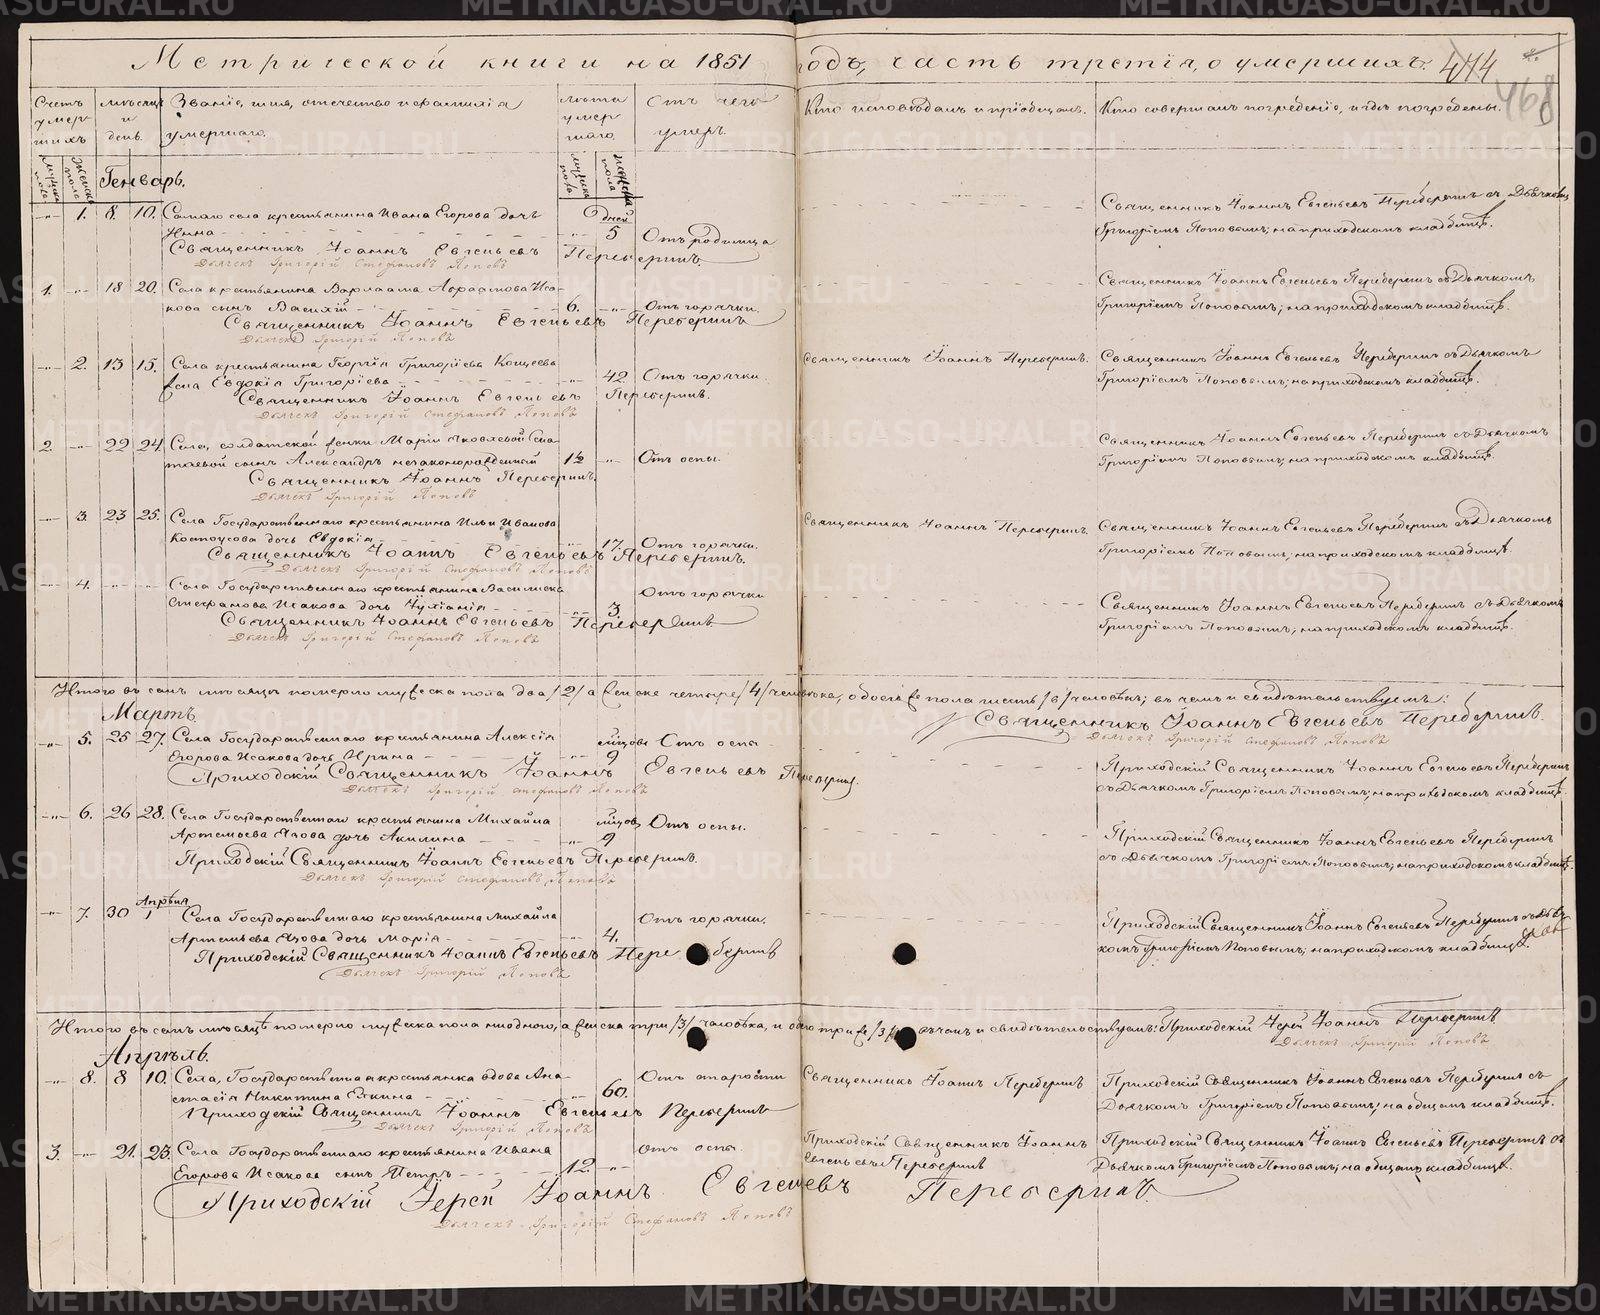 Метрической книги на 1851 годъ, часть третія, о умершихъ. 444
468
Счетъ умершихъ
Мѣсяцъ и день.
Званіе, имя, отечество и фамилія умершаго.
Лѣта умершаго.
Отъ чего умеръ.
Кто исповѣдалъ и пріобщалъ.
Кто совершалъ погребеніе, и гдѣ погребены.
мужеска пола
женска пола
мужеска пола
женска пола
Генварь.
-"- 1. 8. 10. Самаго села крестьянина Ивана Егорова дочь
Нина - 5 дней Отъ родимца
Священникъ Іоаннъ Евгеньевъ Переберинъ
Дьячекъ Григорій Стефановъ Поповъ
Священникъ Іоаннъ Евгеньевъ Переберинъ съ Дьячкомъ
Григоріемъ Поповымъ; на приходскомъ кладбищѣ.
1. -"- 18 20. Села крестьянина Варлаама Авраамова Иса-
кова сынъ Василій - 6. -"- Отъ горячки.
Священникъ Іоаннъ Евгеньевъ Переберинъ
Дьячекъ Григорій Поповъ
Священникъ Іоаннъ Евгеньевъ Переберинъ съ Дьячкомъ
Григоріемъ Поповымъ; на приходскомъ кладбищѣ.
-"- 2. 13 15. Села крестьянина Георгія Григорьева Кощеева
жена Евдокія Григоріева - -"- 42 Отъ горячки.
Священникъ Іоаннъ Евгеньевъ Переберинъ.
Дьячекъ Григорій Стефановъ Поповъ
Священникъ Іоаннъ Переберинъ.
Священникъ Іоаннъ Евгеньевъ Переберинъ съ Дьячкомъ
Григоріемъ Поповымъ; на приходскомъ кладбищѣ.
2. -"- 22 24. Села, солдатской женки Маріи Яковлевой
сынъ Александръ незаконорожденный 1½ -"- Отъ оспы.
Священникъ Іоаннъ Переберинъ.
Дьячекъ Григорій Поповъ
Священникъ Іоаннъ Евгеньевъ Переберинъ съ Дьячкомъ
Григоріемъ Поповымъ, на приходскомъ кладбищѣ.
-"- 3. 23 25. Села Государственнаго крестьянина Ильи Иванова
Костоусова дочь Евдокія - 17. Отъ горячки.
Священникъ Іоаннъ Евгеньевъ Переберинъ.
Дьячекъ Григорій Стефановъ Поповъ
Священникъ Іоаннъ Переберинъ.
Священникъ Іоаннъ Евгеньевъ Переберинъ съ Дьячкомъ
Григоріемъ Поповымъ; на приходскомъ кладбищѣ.
-"- 4. -"- -"- Села Государственнаго крестьянина Василиска
Стефанова Исакова дочь Іуліанія - -"- 3. Отъ горячки
Священникъ Іоаннъ Евгеньевъ Переберинъ
Дьячекъ Григорій Стефановъ Поповъ
Священникъ Іоаннъ Евгеньевъ Переберинъ съ Дьячкомъ
Григоріемъ Поповымъ; на приходскомъ кладбищѣ.
Итого въ семъ мѣсяцѣ померло мужеска пола два /2/ а женска четыре /4/ человѣка, обоего же пола шесть /6/ человѣкъ; въ чемъ и свидѣтельствуемъ:
Священникъ Іоаннъ Евгеньевъ Переберинъ.
Дьячекъ Григорій Стефановъ Поповъ
Мартъ.
-"- 5. 25 27. Села Государственнаго крестьянина Алексія
Егорова Исакова дочь Ирина - -"- 9 мѣсяцовъ Отъ оспы
Приходскій Священникъ Іоаннъ Евгеньевъ Переберинъ.
Дьячекъ Григорій Стефановъ Поповъ
Приходскій Священникъ Іоаннъ Евгеньевъ Переберинъ
съ Дьячкомъ Григоріемъ Поповымъ; на приходскомъ кладбищѣ.
-"- 6. 26 28. Села Государственнаго крестьянина Михайла
Артемьева Язова дочь Акилина - -"- 9 мѣсяцовъ Отъ оспы.
Приходскій Священникъ Іоаннъ Евгеньевъ Переберинъ.
Дьячекъ Григорій Стефановъ Поповъ
Приходскій Священникъ Іоаннъ Евгеньевъ Переберинъ
съ Дьячкомъ Григоріемъ Поповымъ; на приходскомъ кладбищѣ.
-"- 7. 30 Апрѣля 1 Села Государственнаго крестьянина Михайла
Артемьева Язова дочь Марія - 4. Отъ горячки.
Приходскій Священникъ Іоаннъ Евгеньевъ Переберинъ
Дьячекъ Григорій Поповъ
Приходскій Священникъ Іоаннъ Евгеньевъ Переберинъ съ Дьяч-
комъ Григоріемъ Поповымъ; на приходскомъ кладбищѣ.
Итого въ семъ мѣсяцѣ померло мужеска пола ниодного, а женска три /3/ человѣка, и обоего три же /3/ въ чемъ и свидѣтельствуемъ: Приходскій Іерей Іоаннъ Переберинъ
Дьячекъ Григорій Поповъ
Апрѣль.
-"- 8. 8 10. Села, Государственная крестьянка вдова Ана-
стасія Никитина - 60. Отъ старости
Приходскій Священникъ Іоаннъ Евгеньевъ Переберинъ
Дьячекъ Григорій Поповъ
Священникъ Іоаннъ Переберинъ
Приходскій Священникъ Іоаннъ Евгеньевъ Переберинъ съ
Дьячкомъ Григоріемъ Поповымъ; на общемъ кладбищѣ.
3. -"- 21. 23. Села Государственнаго крестьянина Ивана
Егорова Исакова сынъ Петръ - 12. -"- Отъ оспы.
Приходскій Іерей Іоаннъ Евгеньевъ Переберинъ
Дьячекъ Григорій Стефановъ Поповъ
Приходскій Священникъ Іоаннъ
Евгеньевъ Переберинъ
Приходскій Священникъ Іоаннъ Евгеньевъ Переберинъ съ
Дьячкомъ Григоріемъ Поповымъ; на общемъ кладбищѣ.
METRIKI.GASO-URAL.RU